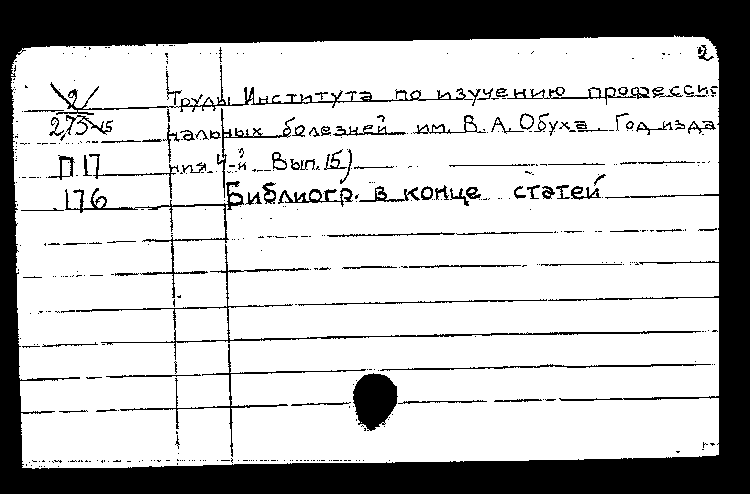 2
2
Труды Института по изучению професси
273-15
нальных болезней им. В. А. Обуха. Год изда-
П 17
ния 4-й Вып. 15)
176
Библиогр. в конце статей